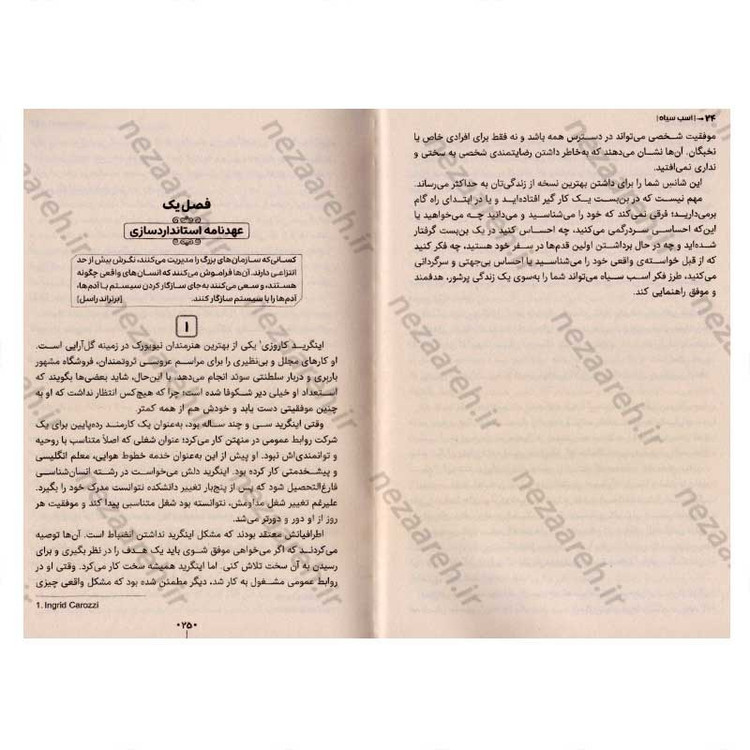 ۲۴ → | اسب سیاه |
موفقیت شخصی می‌تواند در دسترس همه باشد و نه فقط برای افرادی خاص یا
نخبگان. آن‌ها نشان می‌دهند که به‌خاطر داشتن رضایتمندی شخصی به سختی و
نداری نمی‌افتید.
این شانس شما را برای داشتن بهترین نسخه از زندگی‌تان به حداکثر می‌رساند.
مهم نیست که در بن‌بست یک کار گیر افتاده‌اید و یا در ابتدای راه گام
برمی‌دارید؛ فرقی نمی‌کند که خود را می‌شناسید و می‌دانید چه می‌خواهید یا
این‌که احساسی سردرگمی می‌کنید، چه احساس کنید در یک بن‌بست گرفتار
شده‌اید و چه در حال برداشتن اولین قدم‌ها در سفر خود هستید، چه فکر کنید
که از قبل خواسته‌ی واقعی خود را می‌شناسید یا احساس بی‌جهتی و سرگردانی
می‌کنید، طرز فکر اسب سیاه می‌تواند شما را به‌سوی یک زندگی پرشور، هدفمند
و موفق راهنمایی کند.
فصل یک
عهدنامه استانداردسازی
کسانی که سازمان‌های بزرگ را مدیریت می‌کنند، نگرش بیش از حد
انتزاعی دارند. آن‌ها فراموش می‌کنند که انسان‌های واقعی چگونه
هستند، و سعی می‌کنند به جای سازگار کردن سیستم با آدم‌ها،
آدم‌ها را با سیستم سازگار کنند. [برتراند راسل]
۱
اینگرید کاروزی¹ یکی از بهترین هنرمندان نیویورک در زمینه گل‌آرایی است.
او کارهای مجلل و بی‌نظیری را برای مراسم عروسی ثروتمندان، فروشگاه مشهور
باربری و دربار سلطنتی سوئد انجام می‌دهد. با این‌حال، شاید بعضی‌ها بگویند که
استعداد او خیلی دیر شکوفا شده است؛ چرا که هیچ‌کس انتظار نداشت که او به
چنین موفقیتی دست یابد و خودش هم از همه کمتر.
وقتی اینگرید سی و چند ساله بود، به‌عنوان یک کارمند رده‌پایین برای یک
شرکت روابط عمومی در منهتن کار می‌کرد؛ عنوان شغلی که اصلاً متناسب با روحیه
و توانمندی‌اش نبود. او پیش از این به‌عنوان خدمه خطوط هوایی، معلم انگلیسی
و پیشخدمتی کار کرده بود. اینگرید دلش می‌خواست در رشته انسان‌شناسی
فارغ‌التحصیل شود که پس از پنج‌بار تغییر دانشکده نتوانست مدرک خود را بگیرد.
علیرغم تغییر شغل مداومش، نتوانسته بود شغل متناسبی پیدا کند و موفقیت هر
روز از او دور و دورتر می‌شد.
اطرافیانش معتقد بودند که مشکل اینگرید نداشتن انضباط است. آن‌ها توصیه
می‌کردند که اگر می‌خواهی موفق شوی باید یک هدف را در نظر بگیری و برای
رسیدن به آن سخت تلاش کنی. اما اینگرید همیشه سخت کار می‌کرد. وقتی او در
روابط عمومی مشغول به کار شد، دیگر مطمئن شده بود که مشکل واقعی چیزی
1. Ingrid Carozzi
۰۲۵۰
nezaareh.ir
nezaareh.ir
nezaareh.ir
nezaareh.ir
nezaareh.ir
nezaareh.ir
nezaareh.ir
nezaareh.ir
nezaareh.ir